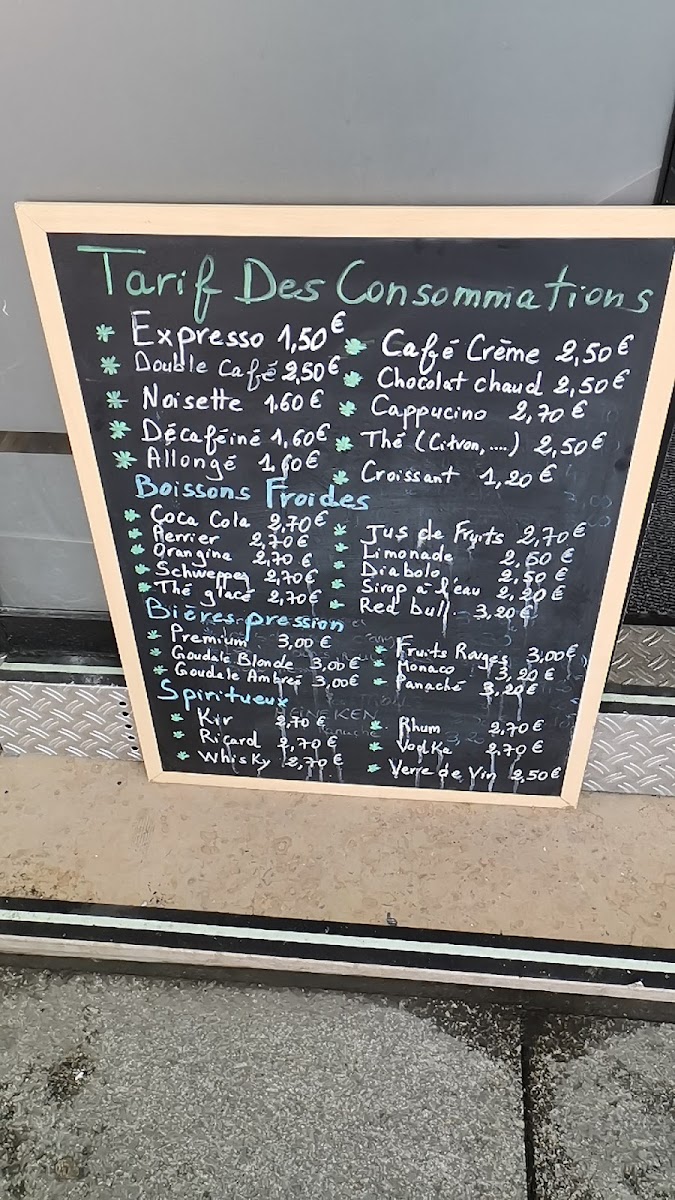 Tarif Des Consommations
Expresso 1,50€
Double Café 2,50€
Noisette 1.60€
Décaféiné 1,60€
Allongé 1,60€
Café Crème 2,50€
Chocolat chaud 2,50€
Cappucino 2,70€
Thé (Citron,....) 2,50€
Croissant 1,20€
Boissons Froides
Coca Cola 2,70€
Perrier 2,70€
Orangina 2,70€
Schweppes 2,70€
Thé glacé 2,70€
Jus de Fruits 2,70€
Limonade 2,50€
Diabolo 2,50€
Sirop à l'eau 2,20€
Red bull 3,20€
Bières pression
Premium 3,00€
Goudale Blonde 3,00€
Goudale Ambreé 3,00€
Fruits Rouges 3,00€
Monaco 3,20€
Panaché 3,20€
Spiritueux
HEINEKEN
Kir 2,70€
Ricard 2,70€
Whisky 2,70€
Rhum 2,70€
Vodka 2,70€
Verre de Vin 2,50€